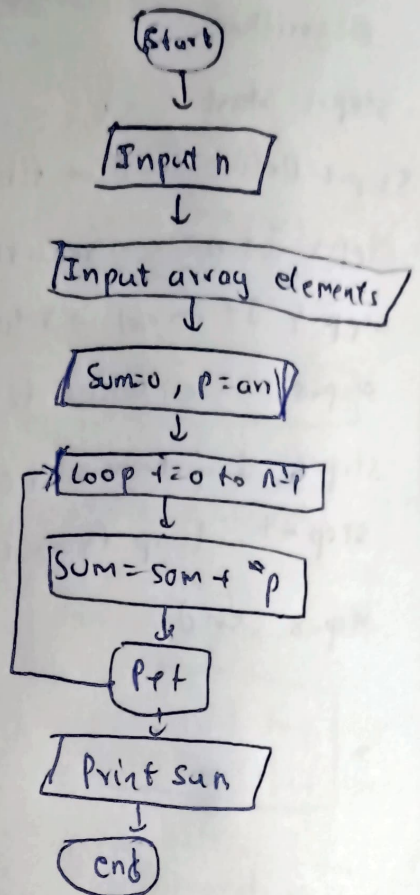 Start
Input n
Input array elements
Sum=0, p=an
Loop i=0 to n-1
Sum=som+ *p
P++
Print sum
end